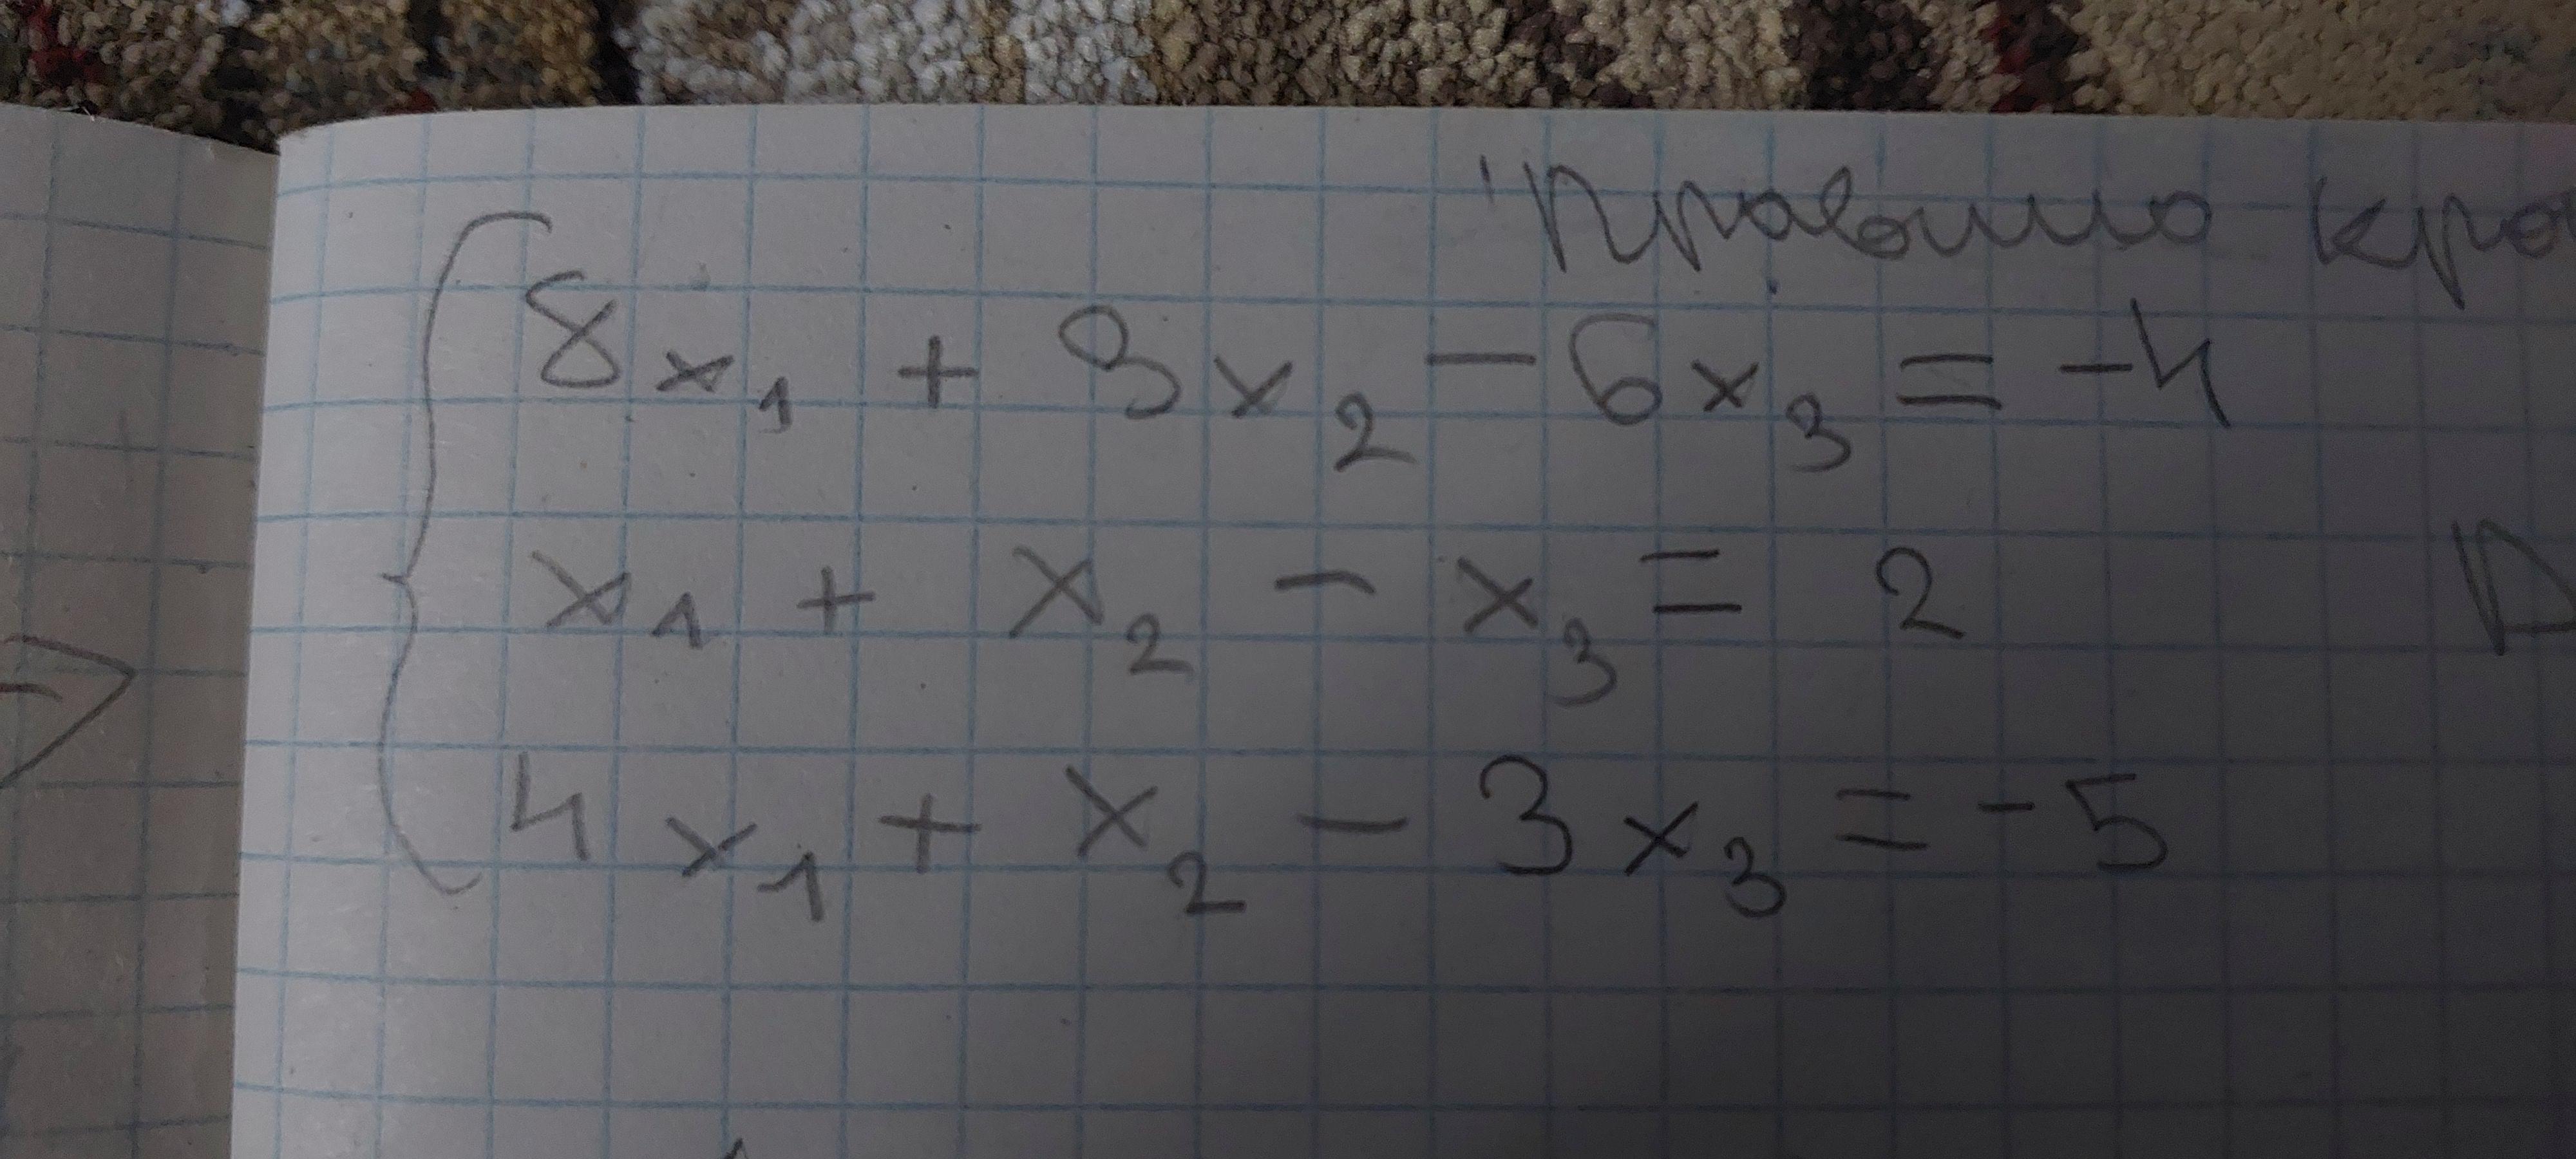 Правило кра
8x₁ + 3x₂ - 6x₃ = -4
x₁ + x₂ - x₃ = 2
4x₁ + x₂ - 3x₃ = -5